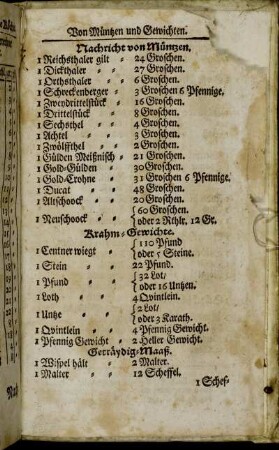 Von Müntzen und Gewichten.
Nachricht von Müntzen.
1 Reichsthaler gilt = 24 Groschen.
1 Dickthaler = = 27 Groschen.
1 Orthsthaler = = 6 Groschen.
1 Schreckenberger = 3 Groschen 6 Pfennige.
1 Zweydrittelstück = 16 Groschen.
1 Drittelstück = 8 Groschen.
1 Sechsthel = = 4 Groschen.
1 Achtel = = 3 Groschen.
1 Zwölffthel = = 2 Groschen.
1 Gülden Meißnisch = 21 Groschen.
1 Gold-Gülden = 30 Groschen.
1 Gold-Crohne = 31 Groschen 6 Pfennige.
1 Ducat = = 48 Groschen.
1 Altschock = = 20 Groschen.
1 Neuschock = = {60 Groschen.
oder 2 Rthlr. 12 Gr.
Krahm-Gewichte.
1 Centner wiegt = {110 Pfund
oder 5 Steine.
1 Stein = = 22 Pfund.
1 Pfund = = {32 Lot/
oder 16 Untzen.
1 Loth = = 4 Qvintlein.
1 Untze = = {2 Lot/
oder 3 Karath.
1 Qvintlein = = 4 Pfennig Gewicht.
1 Pfennig Gewicht = 2 Heller Gewicht.
Gerräydig-Maaß.
1 Wispel hält = 2 Malter.
1 Malter = = 12 Scheffel.
1 Schef-